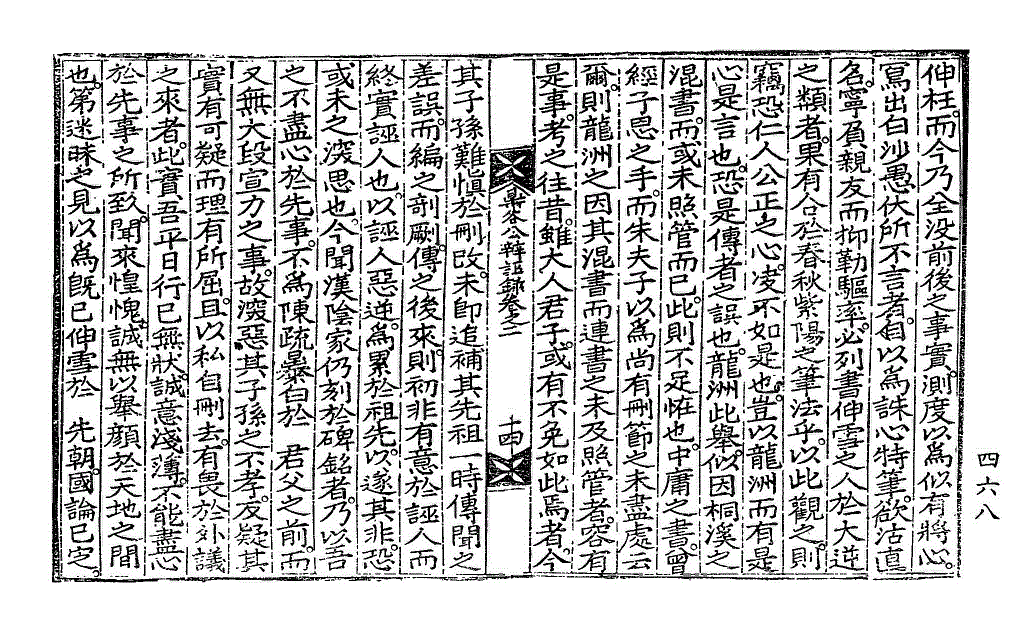 伸枉。而今乃全没前後之事實。測度以爲似有將心。
寫出白沙愚伏所不言者。自以爲誅心特筆。欲沽直
名。寧負親友而抑勤驅率。必列書伸雪之人於大逆
之類者。果有合於春秋紫陽之筆法乎。以此觀之。則
竊恐仁人公正之心。決不如是也。豈以龍洲而有是
心是言也。恐是傳者之誤也。龍洲此擧。似因桐溪之
混書。而或未照管而已。此則不足恠也。中庸之書。曾
經子思之手。而朱夫子以爲尚有刪節之未盡處云
爾。則龍洲之因其混書而連書之未及照管者。容有
是事。考之往昔。雖大人君子。或有不免如此焉者。今
公辨誣錄卷之二
十四
其子孫難愼於刪改。未卽追補其先祖一時傳聞之
差誤。而編之剞劂。傳之後來。則初非有意於誣人而
終實誣人也。以誣人惡逆。爲累於祖先。以遂其非。恐
或未之深思也。今聞漢陰家仍刻於碑銘者。乃以吾
之不盡心於先事。不爲陳疏暴白於 君父之前。而
又無大段宣力之事。故深惡其子孫之不孝。反疑其
實有可疑而理有所屈。且以私自刪去。有畏於外議
之來者。此實吾平日行己無狀。誠意淺薄。不能盡心
於先事之所致。聞來惶愧。誠無以擧顔於天地之間
也。第迷昧之見以爲旣已伸雪於 先朝。國論已定。
四六八